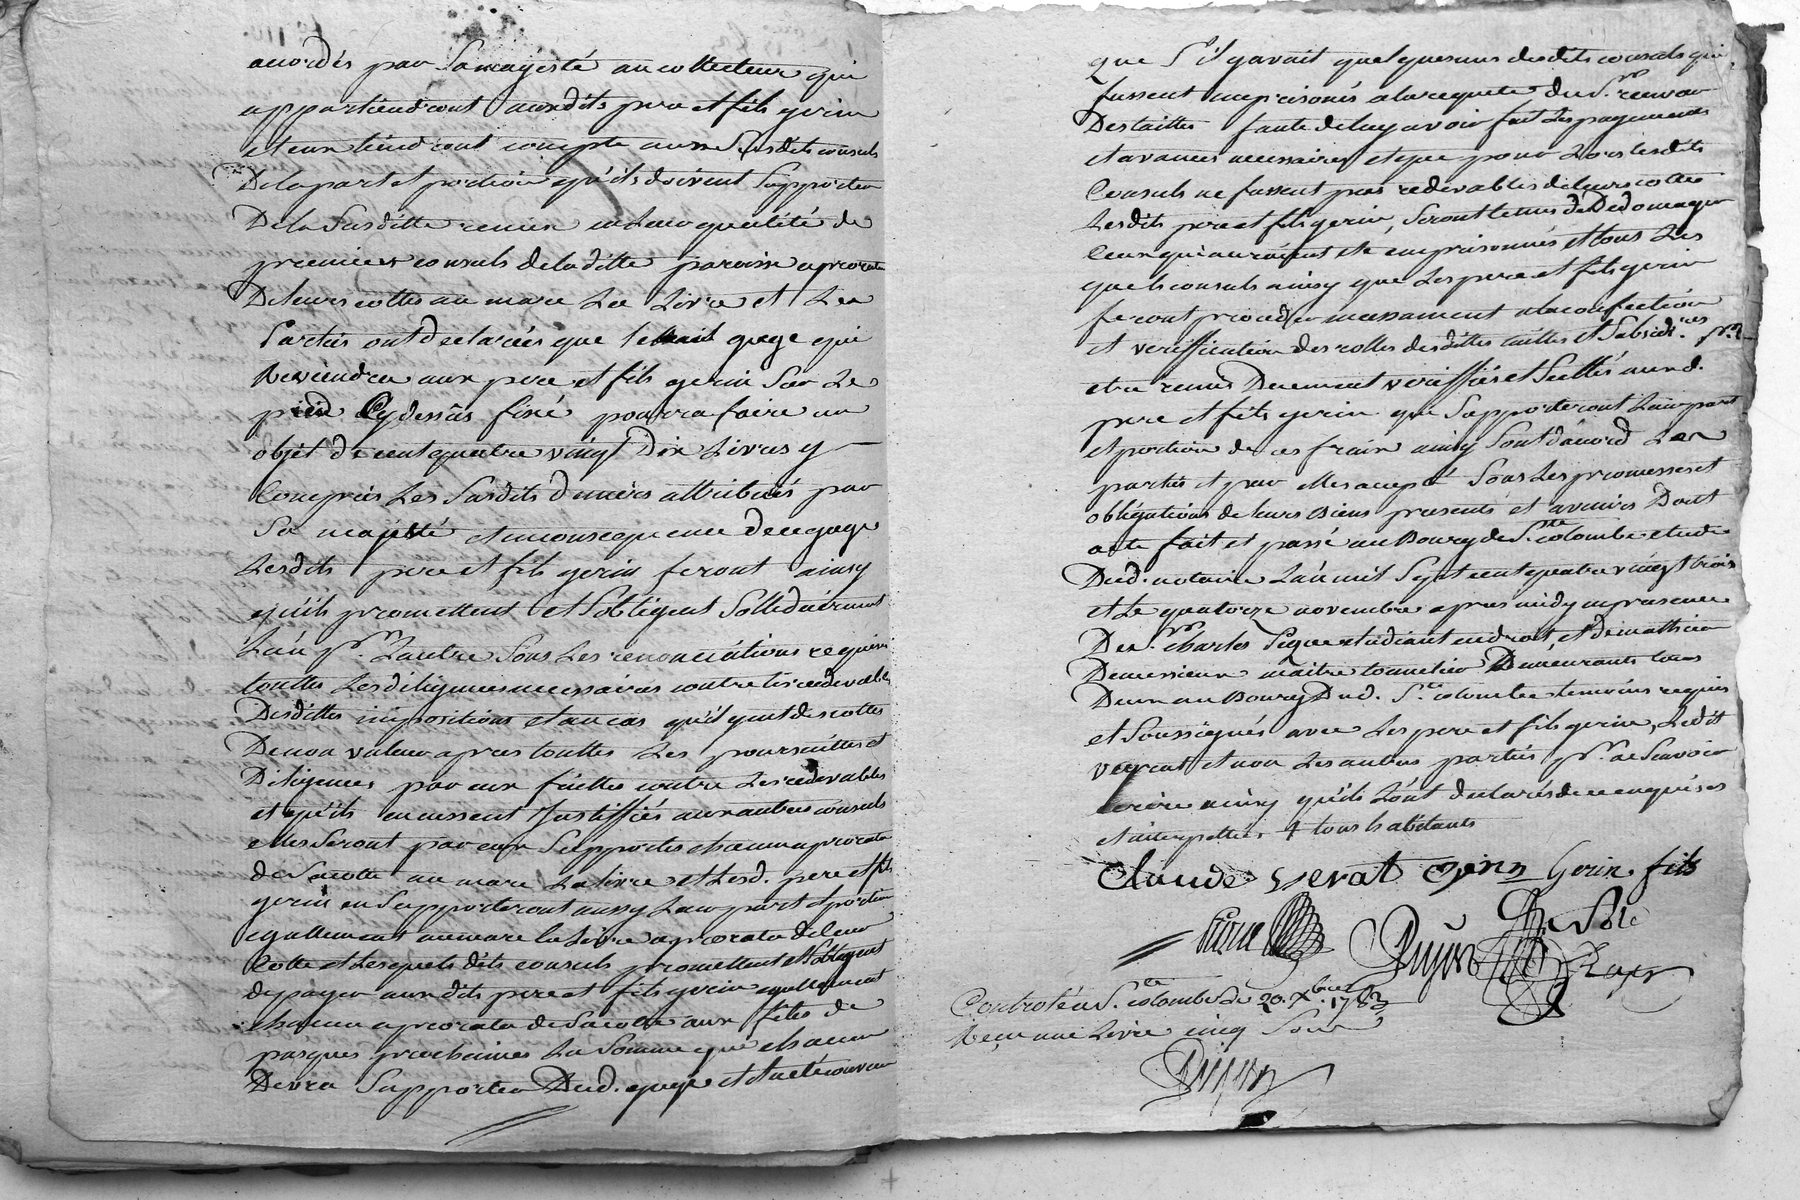 accordés par Sa mayesté au collecteur qui
appartiendront auxdits pere et fils gerin
et en tiendront compte aux Susdits consuls
De la part et portion qu'ils doivent Supporter
De la Susditte remise en leur qualité de
premiers consuls de la ditte paroisse a prorata
De leurs cottes au marc La Livre et Les
Parties ont declarées que le gage qui
Reviendra aux pere et fils gerin Sur Le
pied Cydessus fixé pourra faire un
objet de cent quatre vingt Dix Livres y
Compris Les Susdits deniers attribués par
Sa majesté et en consequence de ce gage
Lesdits pere et fils gerin feront ainsy
qu'ils promettent et S'obligent Sollidairement
L'un pr. L'autre Sous Les renonciations requises
touttes Les diligences necessaires contre les redevables
Desdittes impositions et au cas qu'il y eut des cottes
De non valeur apres touttes Les poursuittes et
Diligences par eux faittes contre Les redevables
et qu'ils en eussent Justiffiés aux autres consuls
elles Seront par eux Supportés chacun a prorata
de Sa cotte au marc La livre et Lesd. pere et fils
gerin en Supporteront aussy Leur part et portion
egallement au marc la Livre a prorata de leur
Cotte et Lesquels dits consuls promettent et S'obligent
de payer auxdits pere et fils gerin egallement
chacun a prorata de Sa cotte aux fêtes de
pasques prochaines La Somme que chacun
Devra Supporter Dud. gage et
que S'il y avait quelques uns desdits consuls qui
fussent emprisonés a la requete du Sr. receveur
Des tailles faute de luy avoir fait Les payements
et avances necessaires et que pour Lors lesdits
Consuls ne fussent pas redevables de leurs cottes
Lesdits pere et fils gerin, Seront tenus de Dedomager
Ceux qui auraient eté emprisonnés et tous Les
quels consuls ainsy que Les pere et fils gerin
feront proceder incessament a la confection
et veriffication des rolles desdittes tailles et Subsid.res pr.
etre remis Duement veriffiés et Scellés auxd.
pere et fils gerin qui Supporteront Leur part
et portion de ces fraix ainsy Sont d'accord Les
parties et par elles accepté Sous Les promesses et
obligations de leurs Biens presents et avenirs Dont
acte fait et passé au Bourg de Ste. colombe etude
Dud. notaire L'an mil Sept cent quatre vingt trois
et le quatorze novembre apres midy en presence
De Sr. Charles etudiant en droit et De mathieu
Demessieux maitre tonnelier Demeurants tous
Deux au Bourg Dud. Ste. colombe temoins requis
et Soussignés avec Les pere et fils gerin, Ledit
verrat et non Les autres parties pr. ne Scavoir
ecrire ainsy qu'ils L'ont declarés de ce enquis
et interpellés 4 tous habitants
Claude verat Gerin Gerin fils
Controlé a Ste. colombe le 20. Xbre. 1783
Reçu une Livre cinq Sous